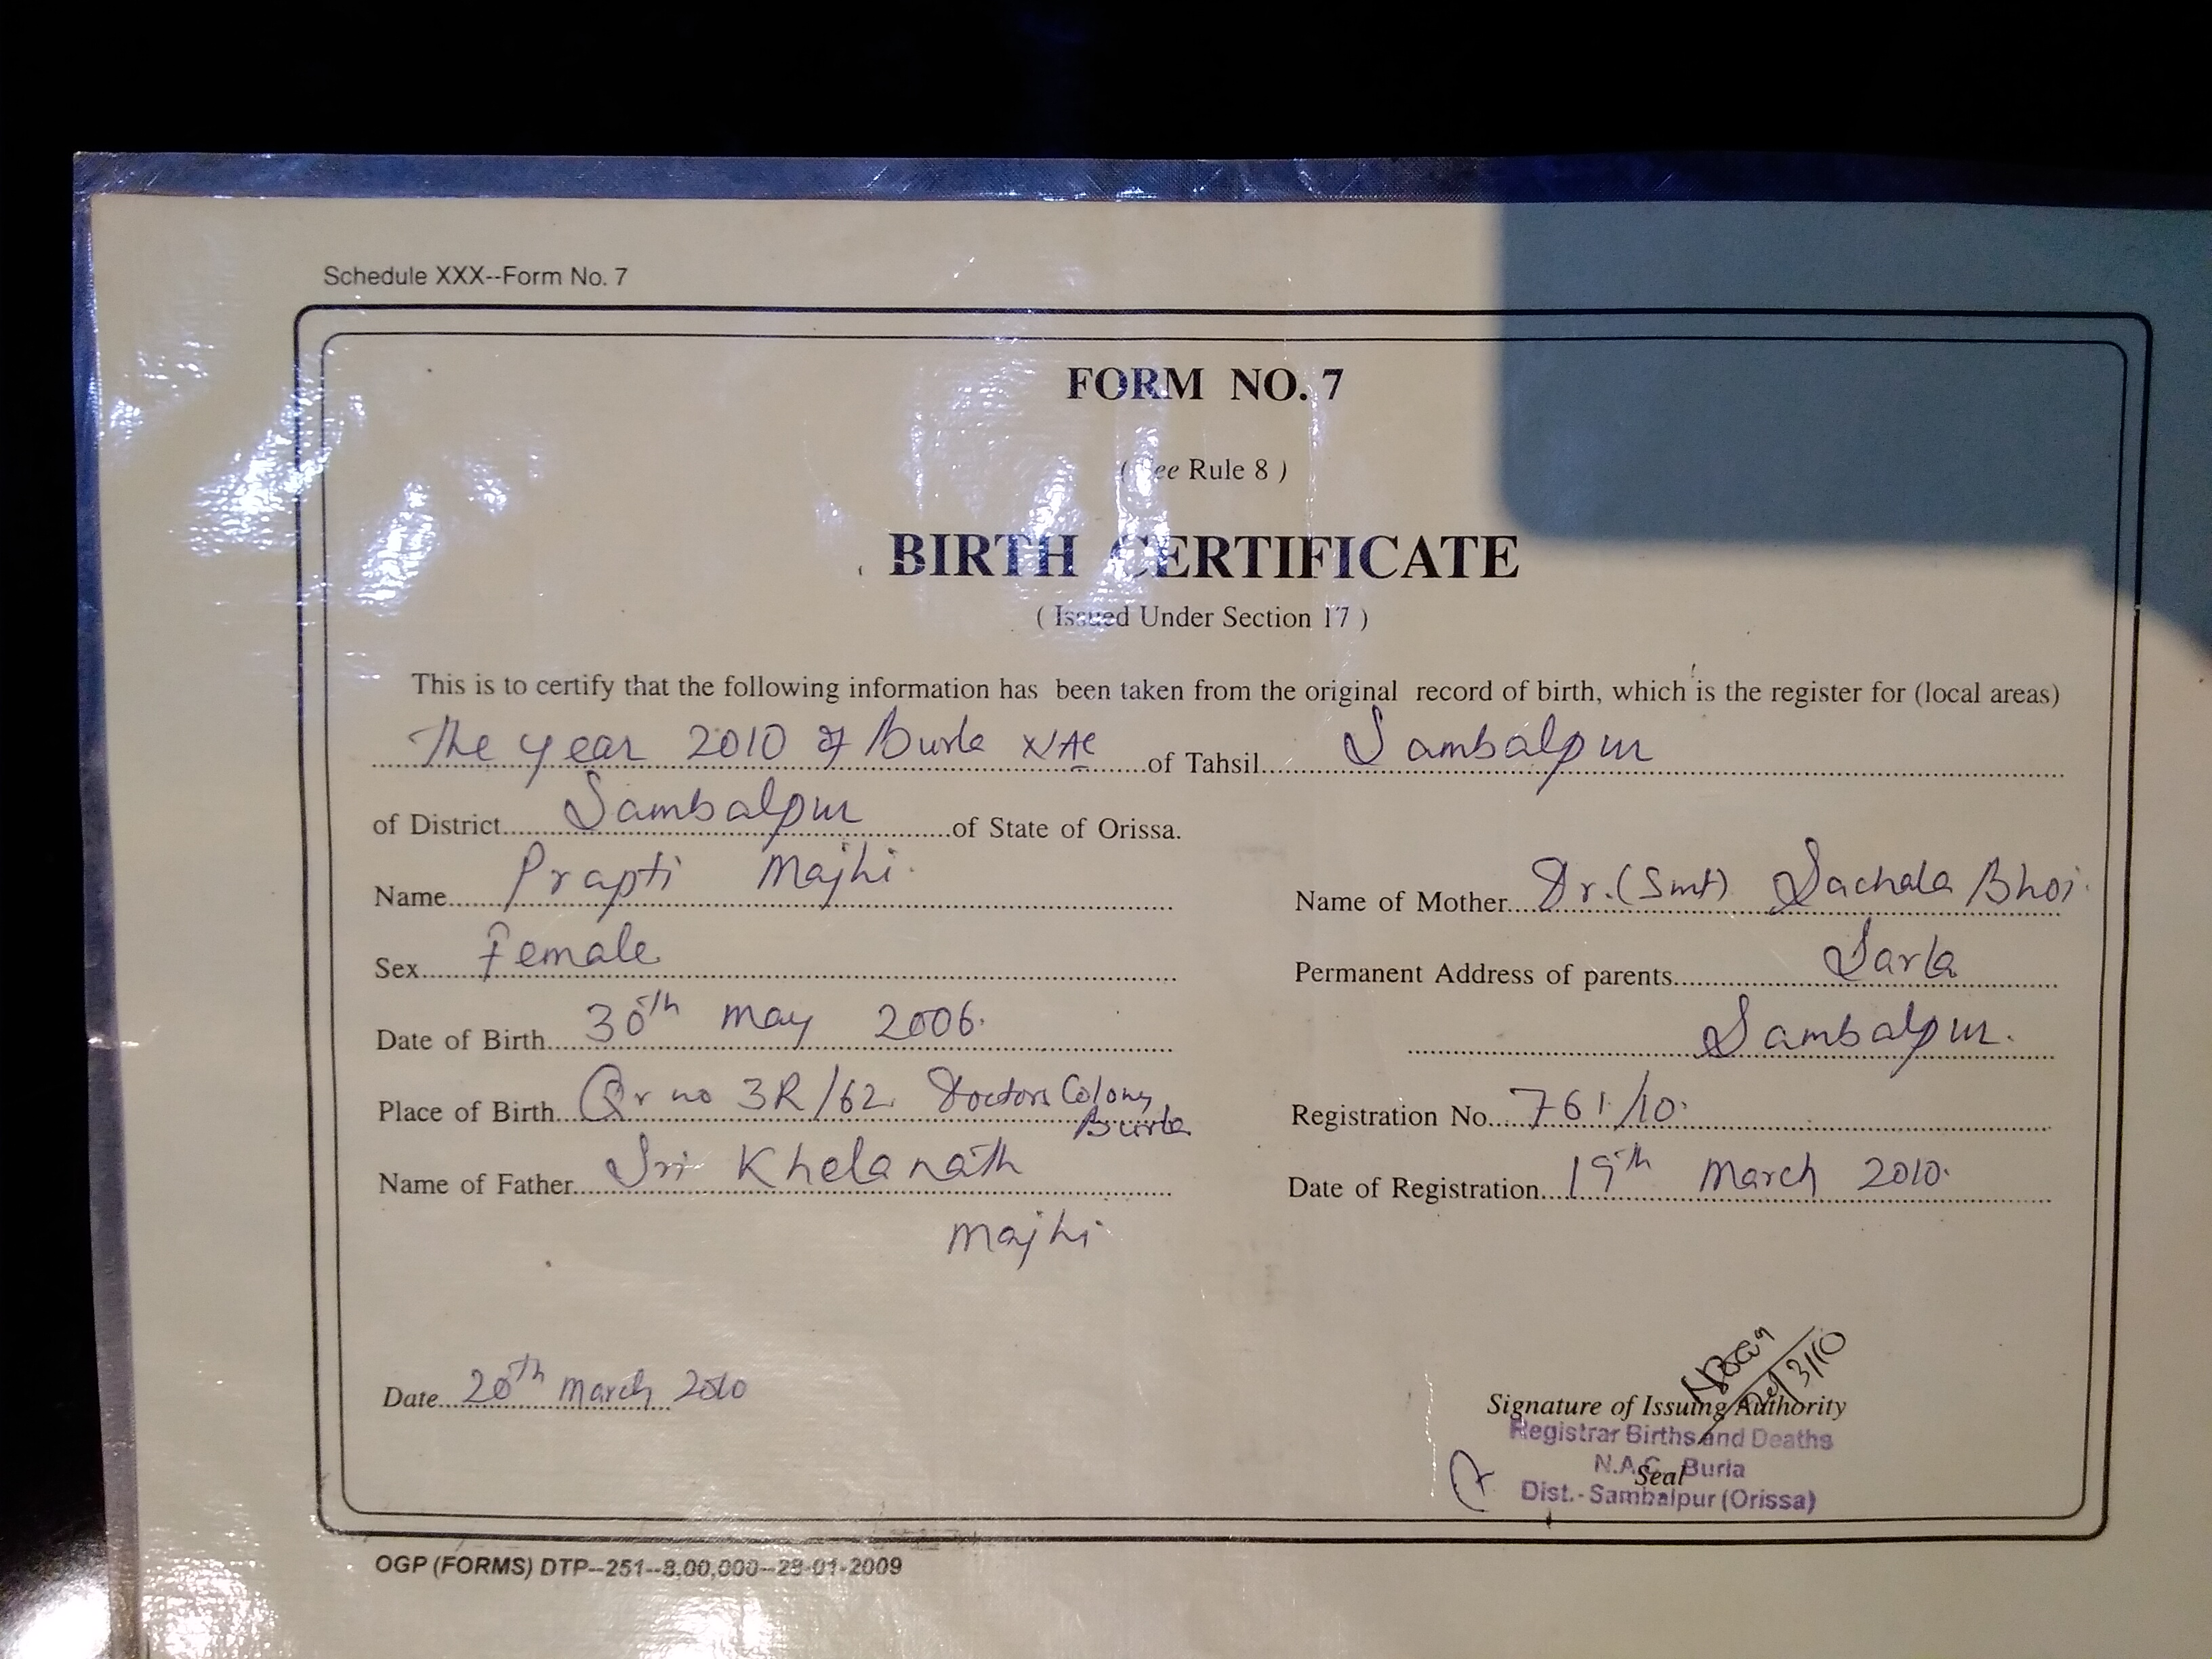 Schedule XXX--Form No. 7
FORM NO. 7
(See Rule 8)
BIRTH CERTIFICATE
(Issued Under Section 17)
This is to certify that the following information has been taken from the original record of birth, which is the register for (local areas)
The year 2010 of Burla NAC of Tahsil Sambalpur
of District Sambalpur of State of Orissa.
Name Prapti Majhi
Name of Mother Dr. (Smt) Sachala Bhoi
Sex Female
Permanent Address of parents Sarla
Sambalpur.
Date of Birth 30th May 2006.
Place of Birth Qr no 3R/62. Doctors Colony
Burla
Registration No. 761/10.
Name of Father Sri Khelanath
Majhi
Date of Registration 19th March 2010.
Date 20th March 2010
Signature of Issuing Authority
Registrar Births and Deaths
N.A.C. Burla
Seal
Dist.- Sambalpur (Orissa)
OGP (FORMS) DTP--251--8,00,000--28-01-2009